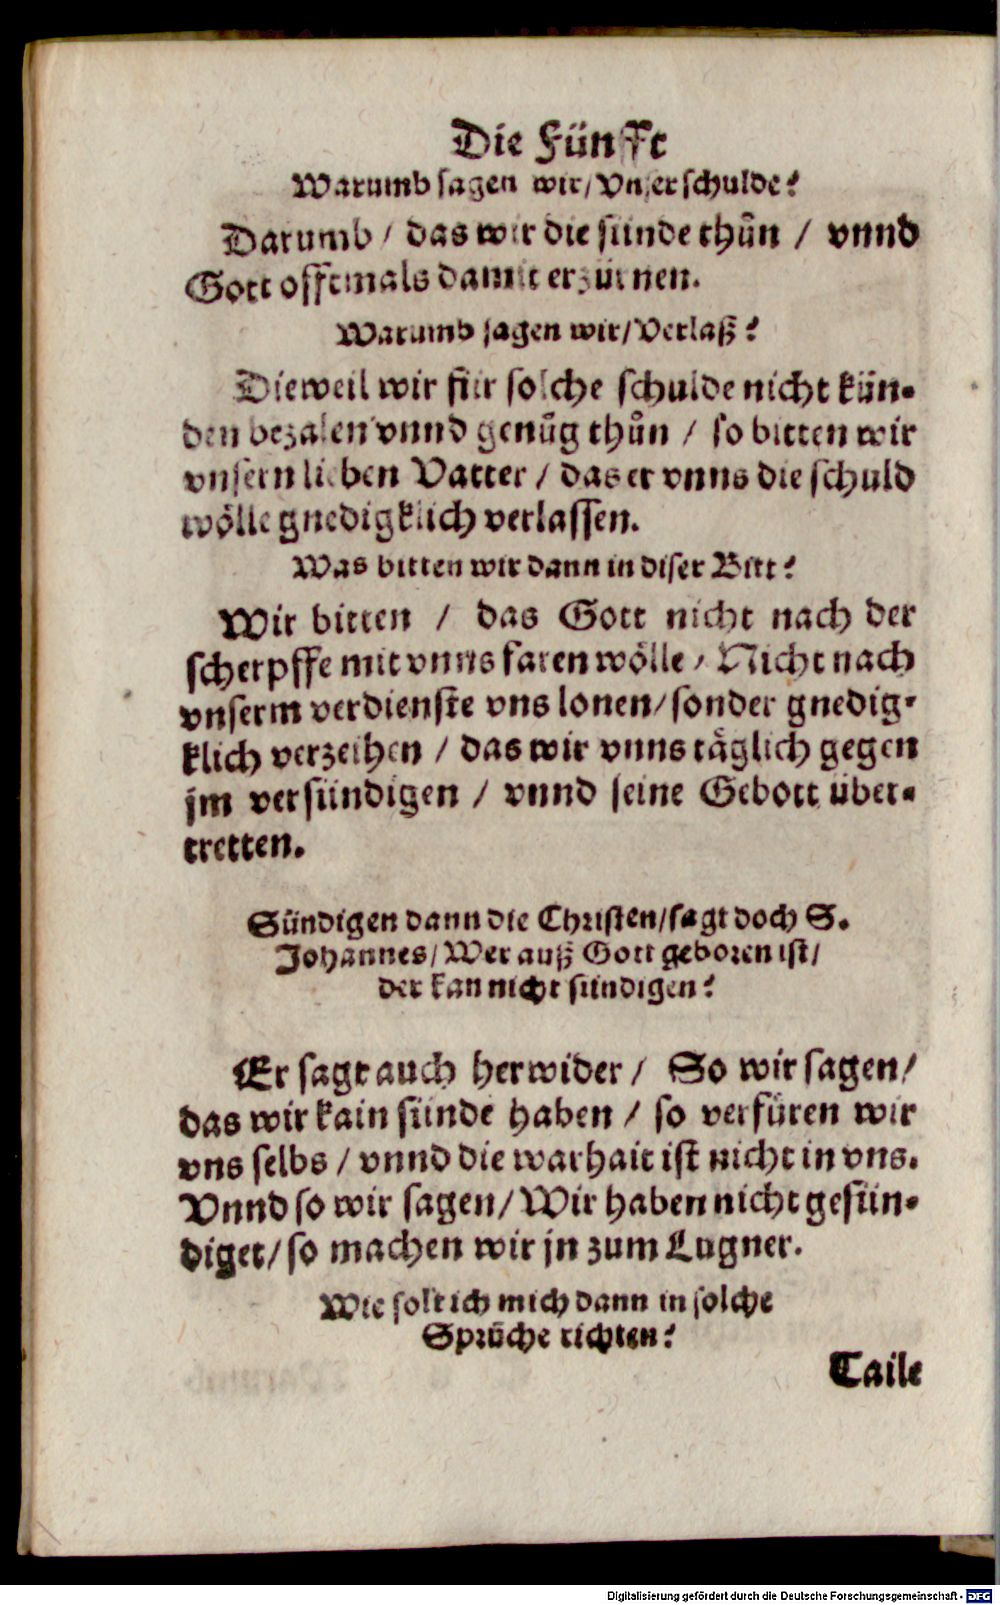 Die Fünfft
Warumb sagen wir/ Vnser schulde?
Darumb / das wir die sünde thůn / vnnd
Gott offtmals damit erzürnen.
Warumb sagen wir/ Verlaß?
Dieweil wir für solche schulde nicht kün-
den bezalen vnnd genůg thůn / so bitten wir
vnsern lieben Vatter / das er vnns die schuld
wölle gnedigklich verlassen.
Was bitten wir dann in diser Bitt?
Wir bitten / das Gott nicht nach der
scherpffe mit vnns faren wölle / Nicht nach
vnserm verdienste vns lonen/ sonder gnedig-
klich verzeihen / das wir vnns täglich gegen
jm versündigen / vnnd seine Gebott über-
tretten.
Sündigen dann die Christen/ sagt doch S.
Johannes/ Wer auß Gott geboren ist/
der kan nicht sündigen?
Er sagt auch herwider / So wir sagen/
das wir kain sünde haben / so verfüren wir
vns selbs / vnnd die warhait ist nicht in vns.
Vnnd so wir sagen/ Wir haben nicht gesün-
diget/ so machen wir jn zum Lugner.
Wie solt ich mich dann in solche
Sprüche richten?
Taile
Digitalisierung gefördert durch die Deutsche Forschungsgemeinschaft - DFG